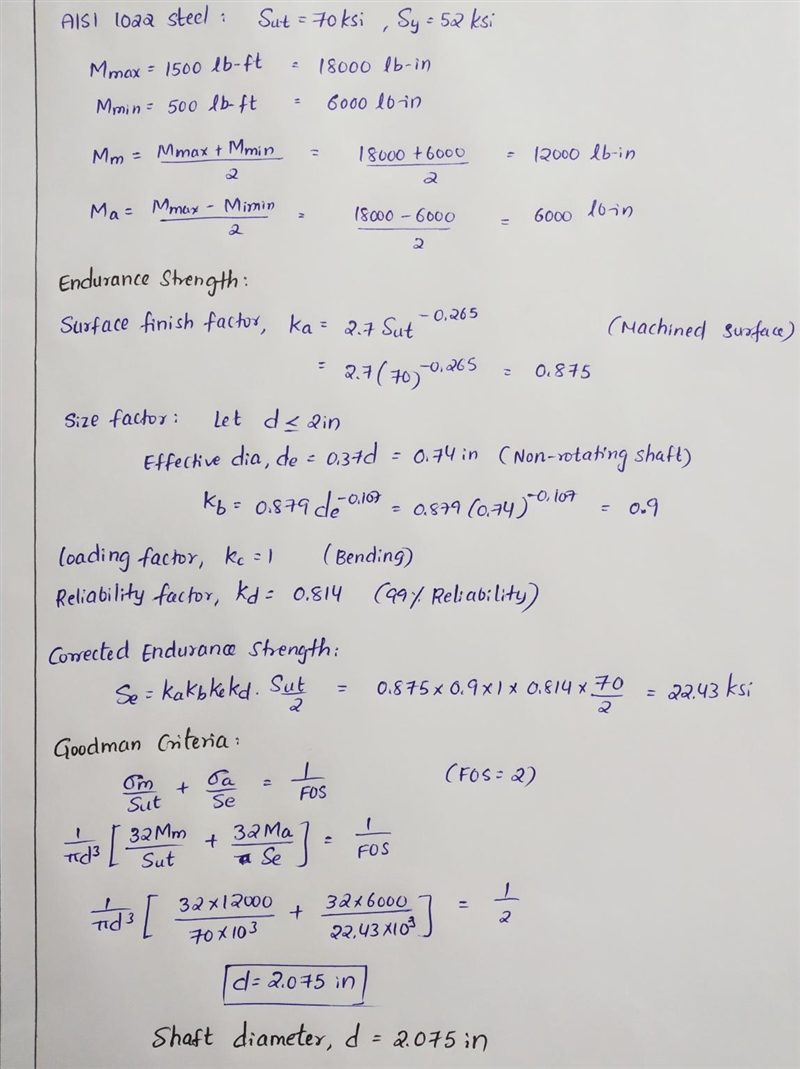 AISI 1022 steel : Sut = 70 ksi , Sy = 52 ksi
Mmax = 1500 lb-ft = 18000 lb-in
Mmin = 500 lb-ft = 6000 lb-in
Mm = (Mmax + Mmin)/2 = (18000 + 6000)/2 = 12000 lb-in
Ma = (Mmax - Mimin)/2 = (18000 - 6000)/2 = 6000 lb-in
Endurance Strength :
Surface finish factor, ka = 2.7 Sut^-0.265 (Machined surface)
= 2.7(70)^-0.265 = 0.875
Size factor : Let d ≤ 2in
Effective dia, de = 0.37d = 0.74 in (Non-rotating shaft)
kb = 0.879 de^-0.107 = 0.879 (0.74)^-0.107 = 0.9
loading factor, kc = 1 (Bending)
Reliability factor, kd = 0.814 (99% Reliability)
Corrected Endurance Strength :
Se = ka kb kc kd . Sut/2 = 0.875 × 0.9 × 1 × 0.814 × 70/2 = 22.43 ksi
Goodman Criteria :
σm/Sut + σa/Se = 1/FOS (FOS = 2)
1/πd³ [ 32Mm/Sut + 32Ma/Se ] = 1/FOS
1/πd³ [ 32×12000/70×10³ + 32×6000/22.43×10³ ] = 1/2
d = 2.075 in
Shaft diameter, d = 2.075 in